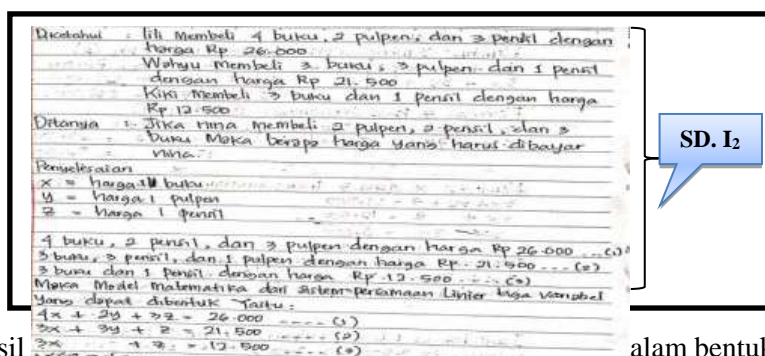 Diketahui : lili Membeli 4 buku, 2 pulpen, dan 3 pensil dengan
harga Rp 26.000
Wahyu Membeli 3 buku, 3 pulpen dan 1 pensil
dengan harga Rp 21.500
Kiki Membeli 3 buku dan 1 pensil dengan harga
Rp 12.500
Ditanya : Jika nina membeli 2 pulpen, 2 pensil, dan 3
buku Maka berapa harga yang harus dibayar
nina.
SD. I2
Penyelesaian
x = harga 1 buku
y = harga 1 pulpen
z = harga 1 pensil
4 buku, 2 pensil, dan 3 pulpen dengan harga Rp 26.000 ...(1)
3 buku, 3 pensil, dan 1 pulpen dengan harga Rp. 21.500 ....(2)
3 buku dan 1 Pensil dengan harga Rp. 12.500 ....(3)
Maka Model matematika dari sistem persamaan linier tiga variabel
yang dapat dibentuk Yaitu:
4x + 2y + 3z = 26.000 .... (1)
3x + 3y + z = 21.500 .... (2)
3x + z = 12.500 .... (3)
sil
alam bentuk